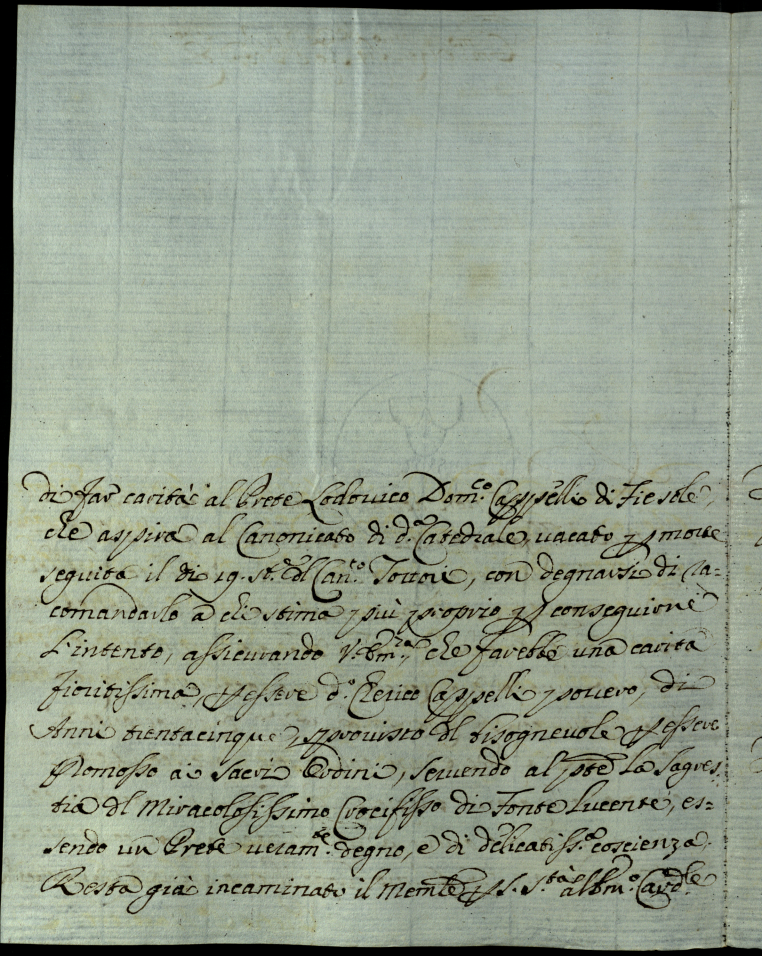 di far carità al Prete Lodovico Dom.co Cappelli di Fiesole,
che aspira al Canonicato di d.a Catedrale, vacato p morte
seguita il di 19. st.e dl Can.co Tortori, con degnarsi di ra=
comandarlo a chi stima più proprio p conseguirne
L'intento, assicurando V. Em.za che farebbe una carità
fioritissima, p essere d.o Cherico Cappelli povero, di
Anni trentacinque, sprovisto dl bisognevole p essere
Promosso ai Sacri Ordini, servendo al pnte la Sagres
tia dl Miracolosissimo Crocifisso di Fonte Lucente, es=
sendo un Prete veram.te degno, e di delicatiss.a coscienza.
Resta già incaminato il Memle p S. S.tà all'Em.o Card.le